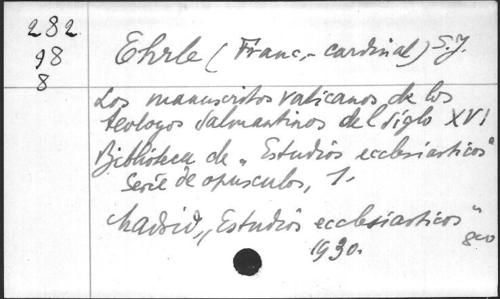 282
98
8
Ehrle (Franc,- cardinal) S.J.
Los manuscritos vaticanos de los
teologos salmantinos del siglo XVI
Biblioteca de „Estudios ecclesiasticos"
Serie de opusculos, 1.
Madrid, „Estudios ecclesiasticos"
1930. 8vo